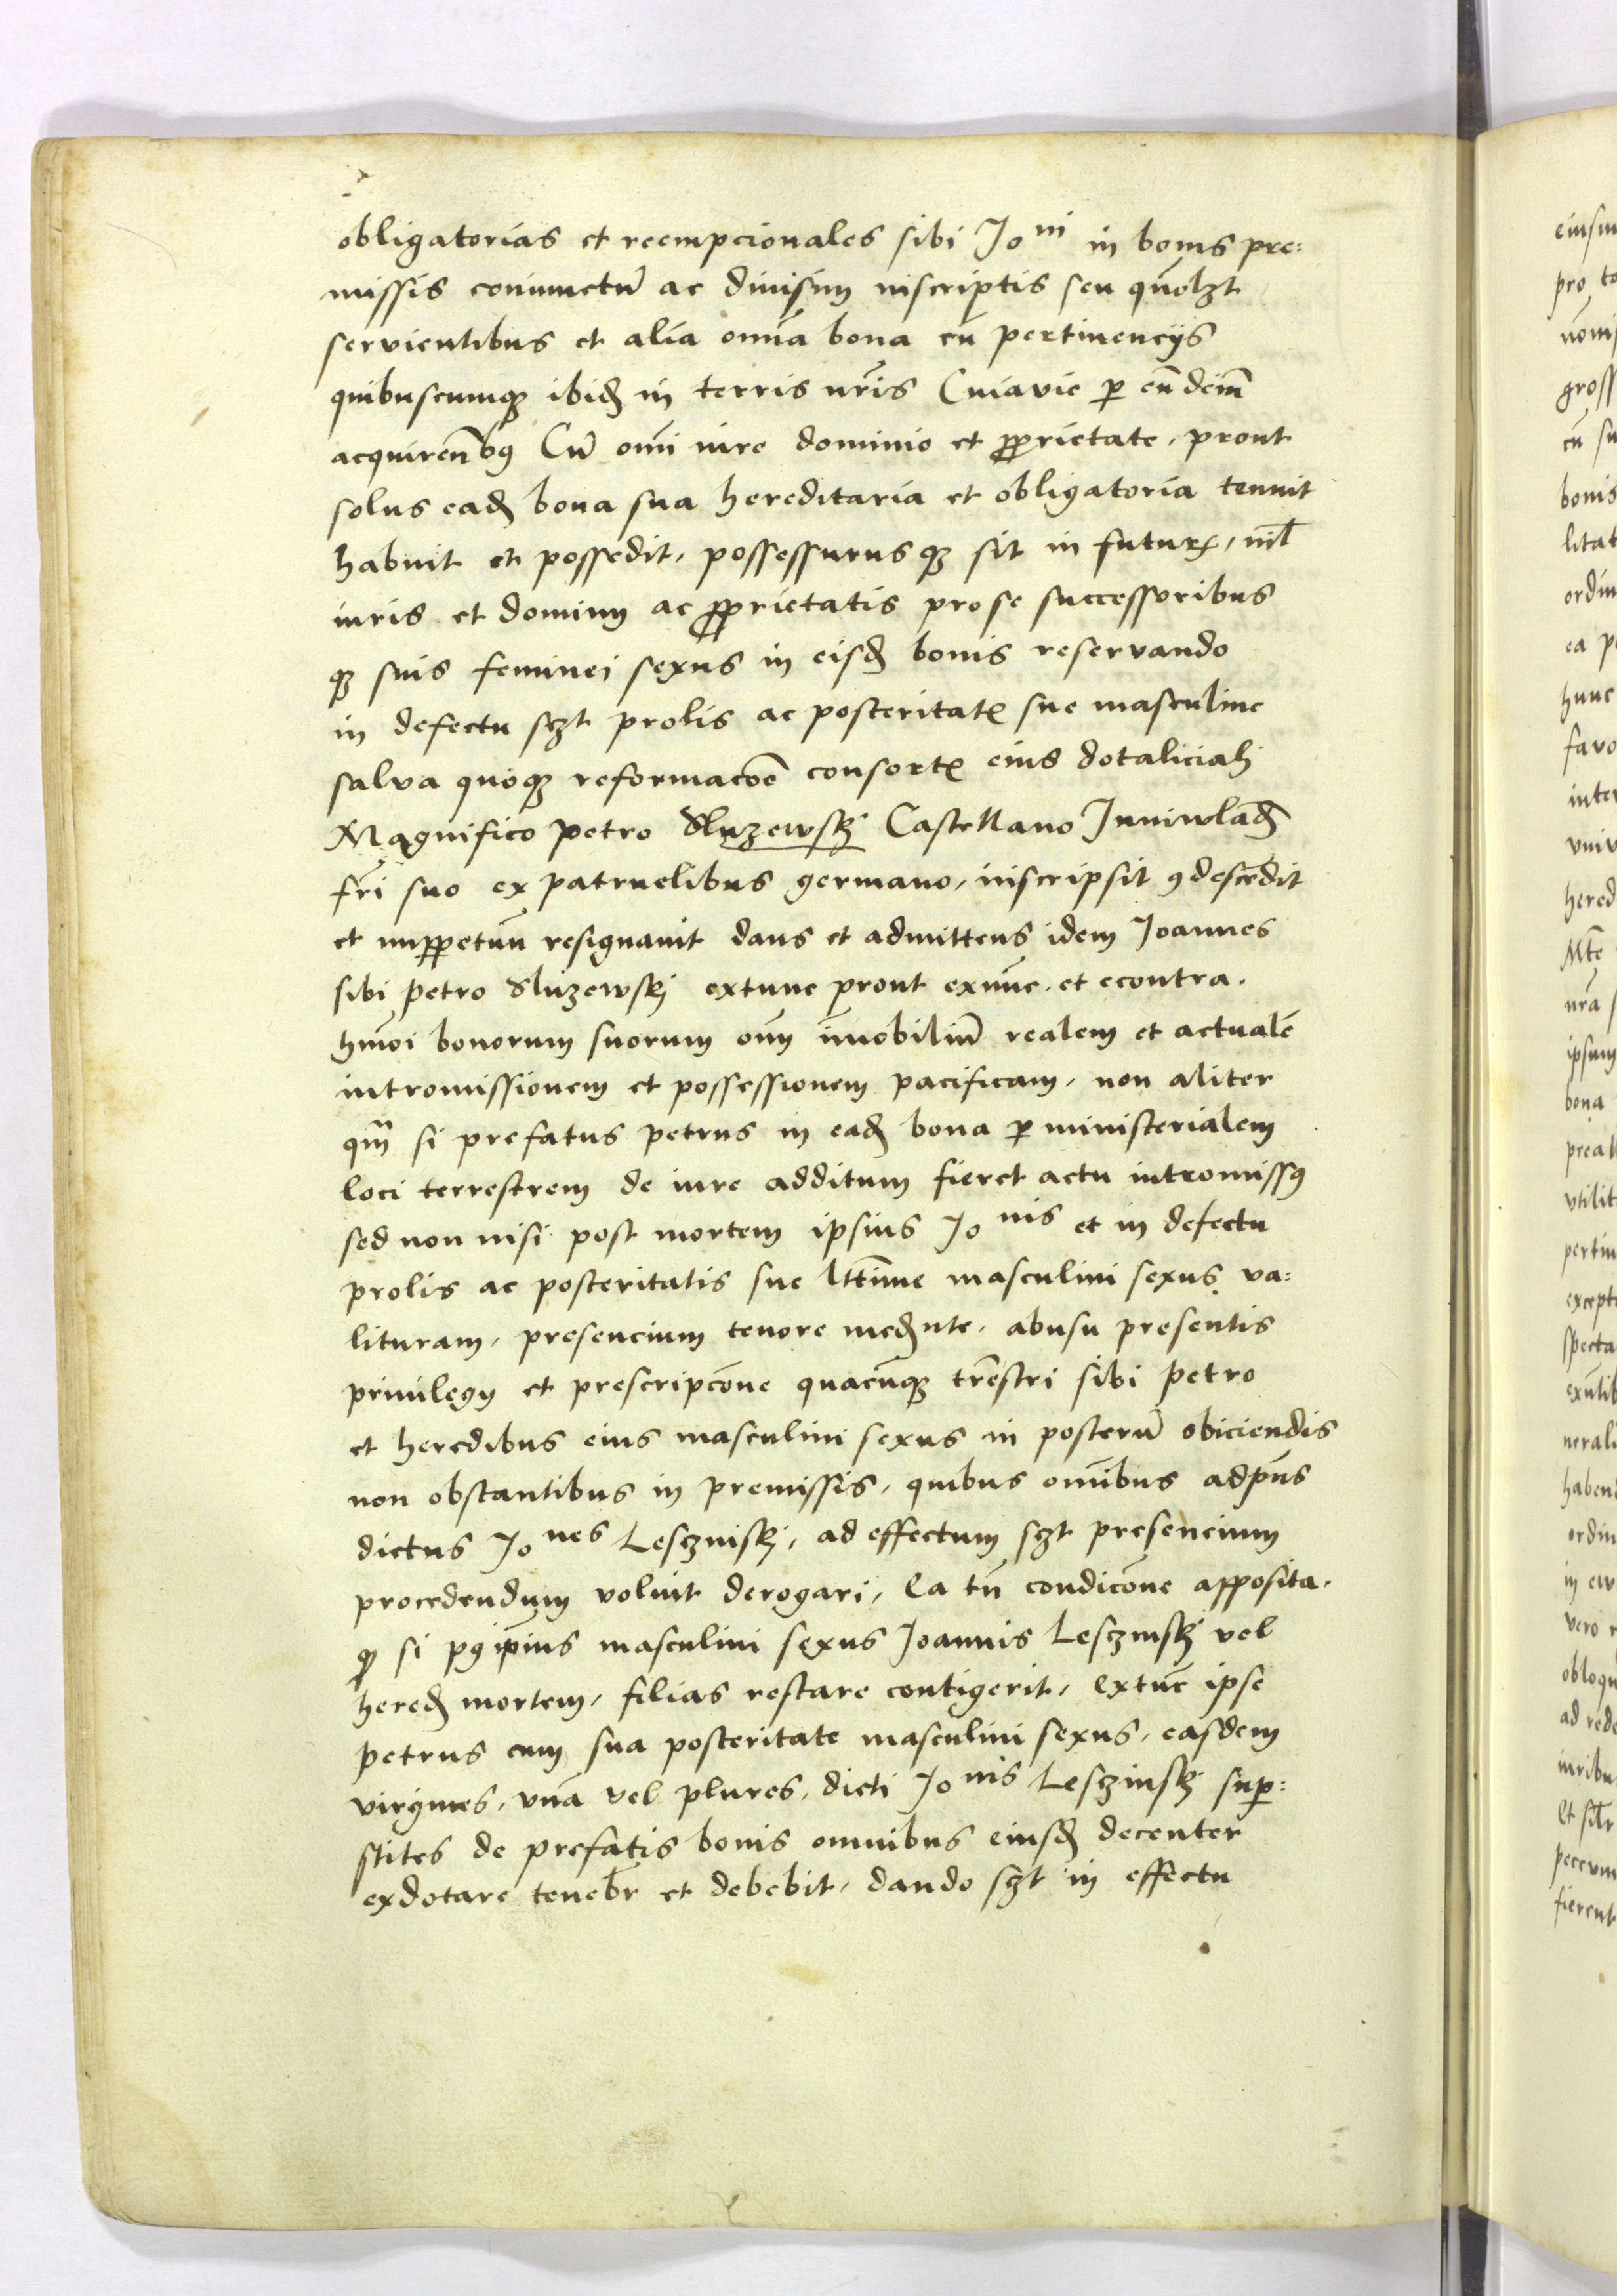 obligatorias et reempcionales sibi Jo ni in bonis pre:
missis coniunctū ac diuisim inscriptis seu quōlȝt
servientibus et alia om̄ia bona cū pertinencijs
quibuscumqȝ ibid̄ in terris nr̄is Cuiavie ꝑ eūdem̄
acquirend̄bꝯ Cū om̄i iure dominio et ꝓprietate, prout
solus ead̄ bona sua hereditaria et obligatoria tenuit
habuit et possedit, possessurusqȝ sit in futurꝝ, nil̄
iuris et dominij ac ꝓprietatis pro se successoribus
qȝ suis feminei sexus in eisd̄ bonis reservando
in defectu sȝt prolis ac posteritatꝭ sue masculine
salva quoqȝ reformacōe consortꝭ eius dotaliciali
Magnifico Petro Sluzewskj Castellano Juniwlad̄
fr̄i suo ex patruelibus germano, inscripsit ꝯdescēdit
et imꝑpetuū resignavit dans et admittens idem Joannes
sibi Petro Sluzewskj extunc prout exnūc, et econtra.
hmōi bonorum suorum om̄ īmobiliū realem et actualē
intromissionem et possessionem pacificam, non aliter
qm̄ si prefatus Petrus in ead̄ bona ꝑ ministerialem
loci terrestrem de iure additum fieret actu intromissꝯ
sed non nisi post mortem ipsius Jo nis et in defectu
prolis ac posteritatis sue lttīme masculini sexus va:
lituram, presencium tenore med̄nte, abusu presentis
privilegij et prescripcōne quacūqȝ tr̄estri sibi Petro
et heredibus eius masculini sexus in posterū obiciendis
non obstantibus in premissis, quibus om̄ibus adpn̄s
dictus Jo nes Lesczniskj, ad effectum sȝt presencium
procedendum voluit derogari, Ea tn̄ condicōne apposita.
qȝ si pꝯ ip̄ius masculini sexus Joannis Lesczinskj vel
hered̄ mortem, filias restare contigerit, Extūc ipse
Petrus cum sua posteritate masculini sexus, easdem
virgines, vnā vel plures, dicti Jo nis Lesczinskj suꝑ:
stites de prefatis bonis omnibus eiusd̄ decenter
exdotare teneb̄r et debebit, dando sȝt in effectu